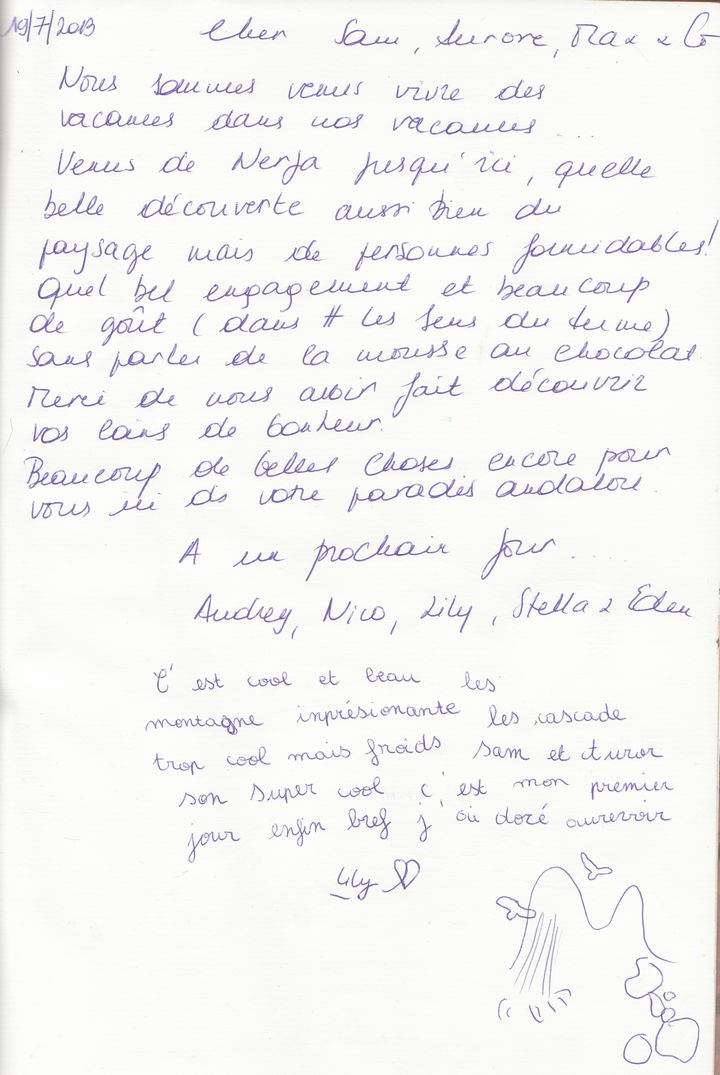 19/7/2013
Cher Sam, Aurore, Max & Co
Nous sommes venus vivre des
vacances dans nos vacances ....
Venus de Nerja jusqu'ici, quelle
belle découverte aussi bien du
paysage mais de personnes formidables!
Quel bel engagement et beaucoup
de goût (dans # les sens du terme)
sans parler de la mousse au chocolat.
Merci de nous avoir fait découvrir
vos coins de bonheur.
Beaucoup de belles choses encore pour
vous ici ds votre paradis andalou.
A un prochain jour ....
Audrey, Nico, Lily, Stella & Eden
C'est cool et beau les
montagne inprésionante les cascade
trop cool mais froids Sam et
son super cool c'est mon premier
jour enfin bref j'ai doré aurevoir
Lily